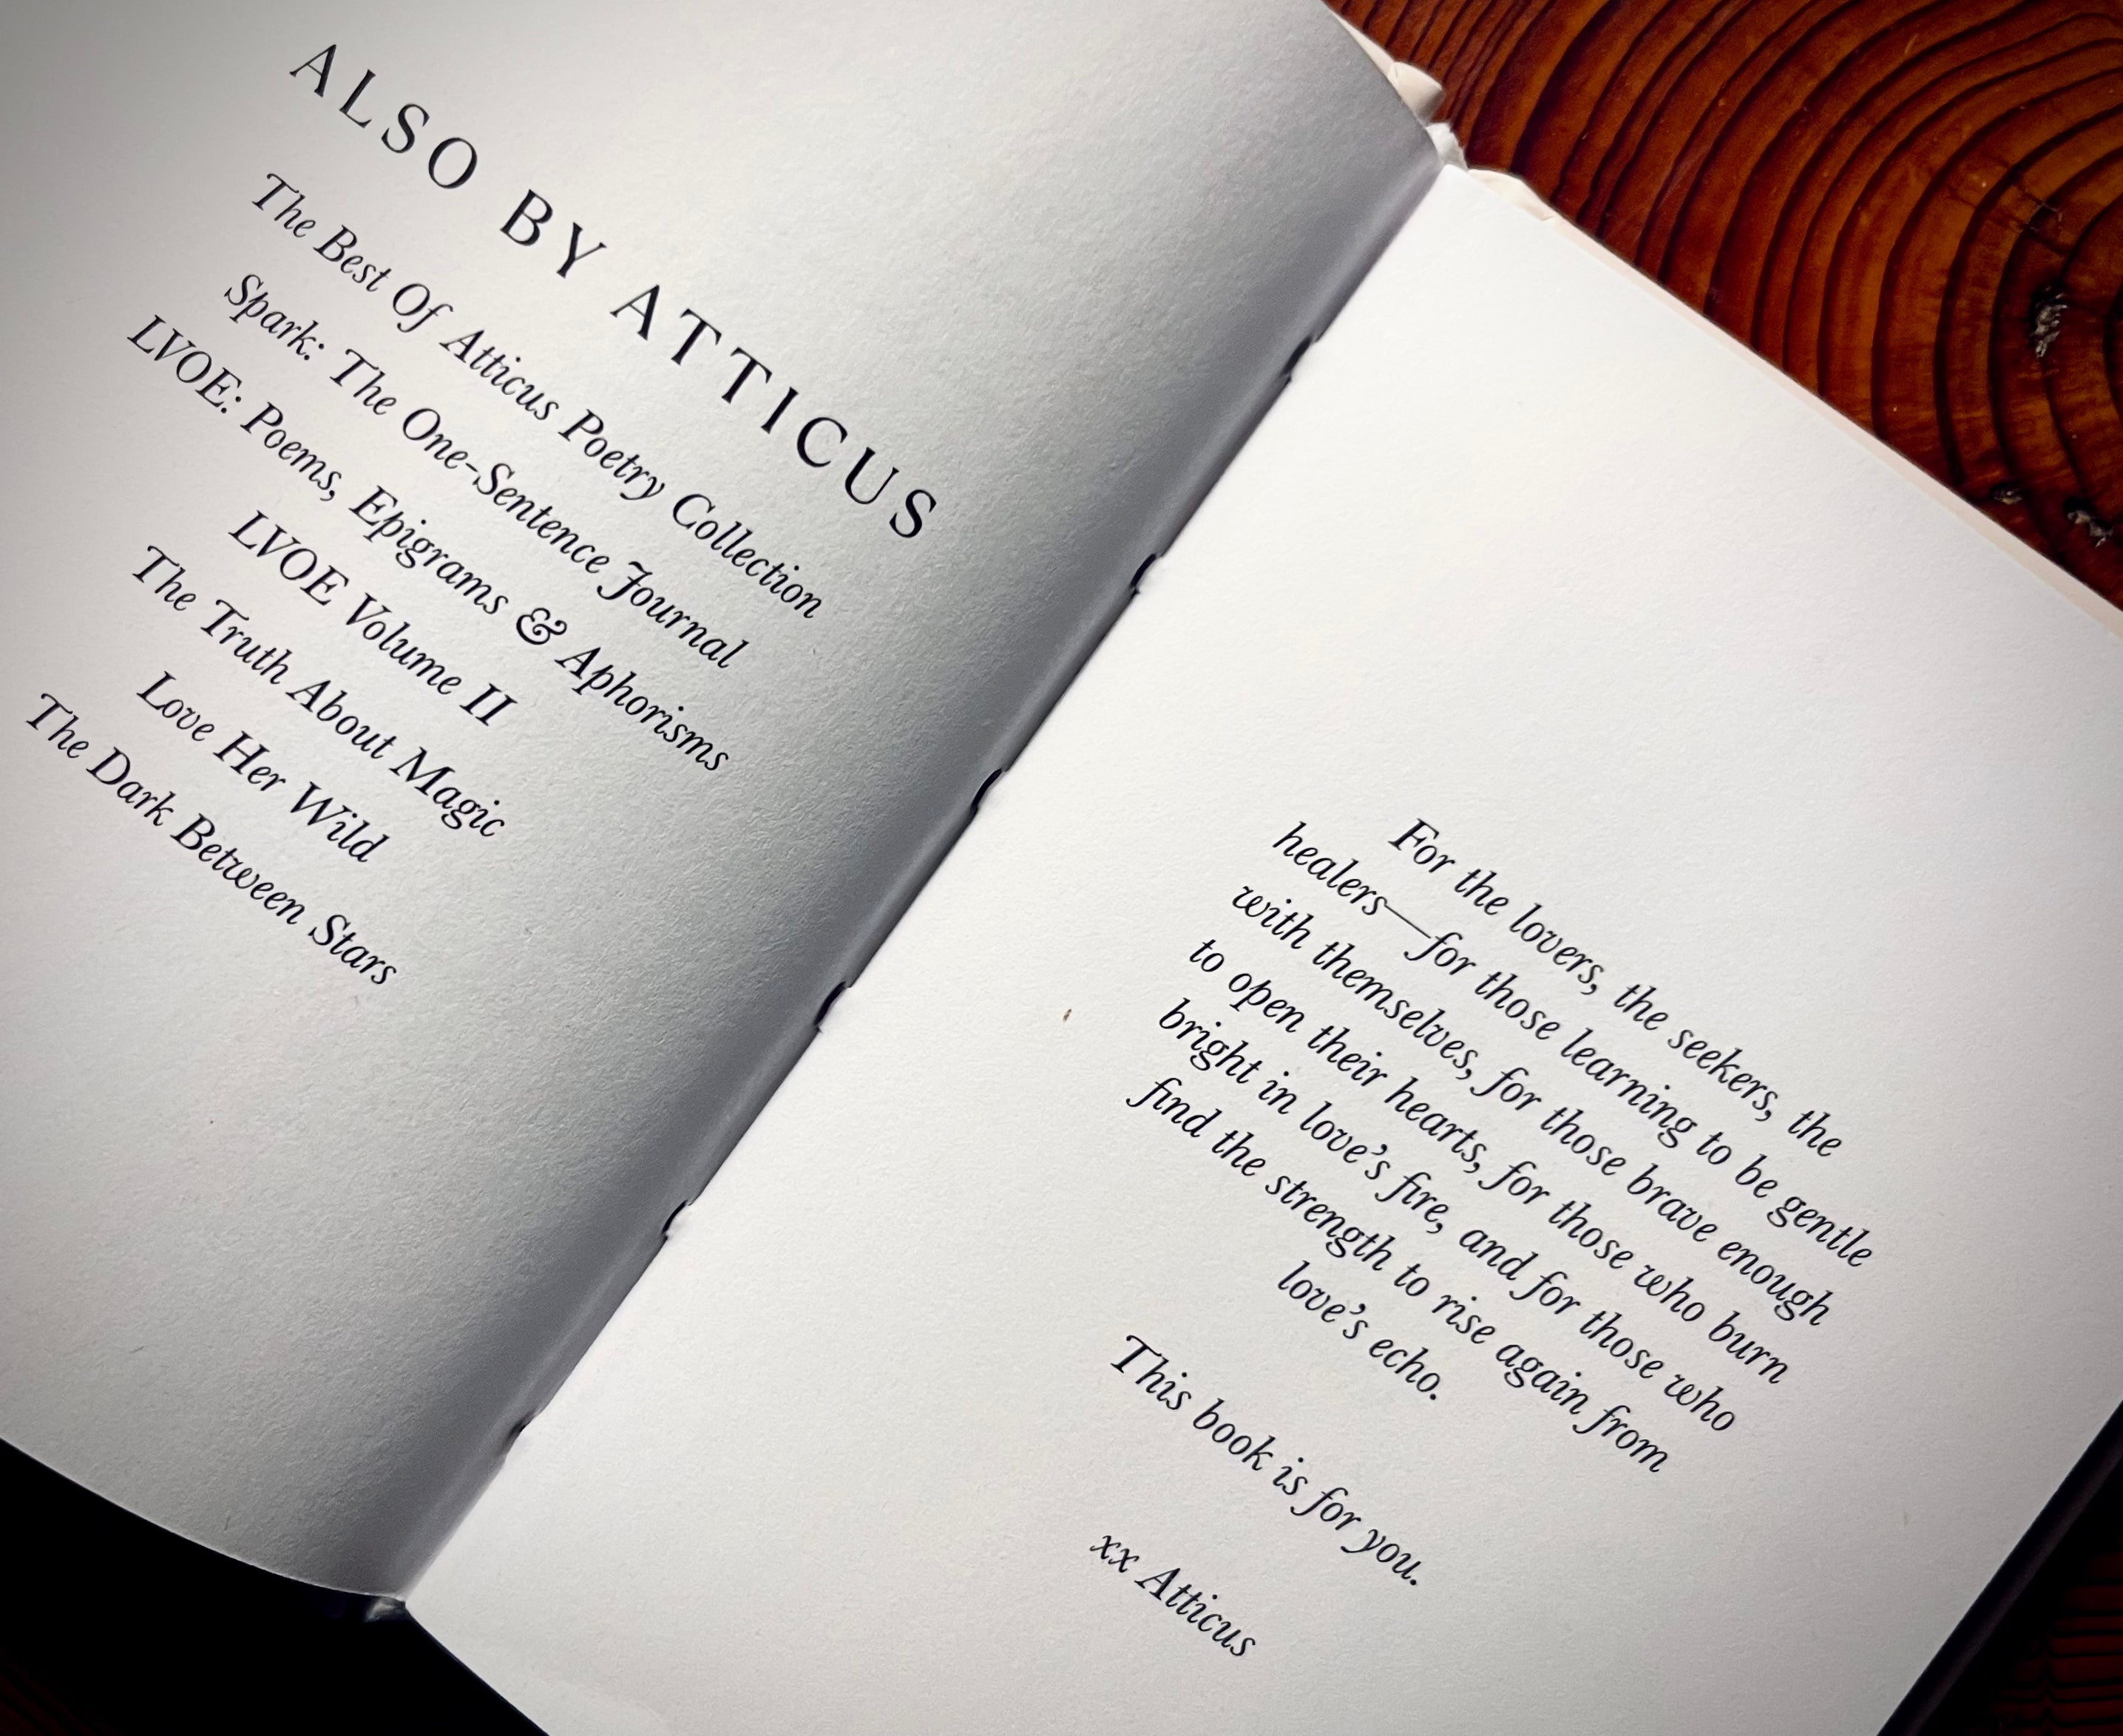 ALSO BY ATTICUS
The Best Of Atticus Poetry Collection
Spark: The One-Sentence Journal
LVOE: Poems, Epigrams & Aphorisms
LVOE Volume II
The Truth About Magic
Love Her Wild
The Dark Between Stars
For the lovers, the seekers, the
healers—for those learning to be gentle
with themselves, for those brave enough
to open their hearts, for those who burn
bright in love’s fire, and for those who
find the strength to rise again from
love’s echo.
This book is for you.
xx Atticus